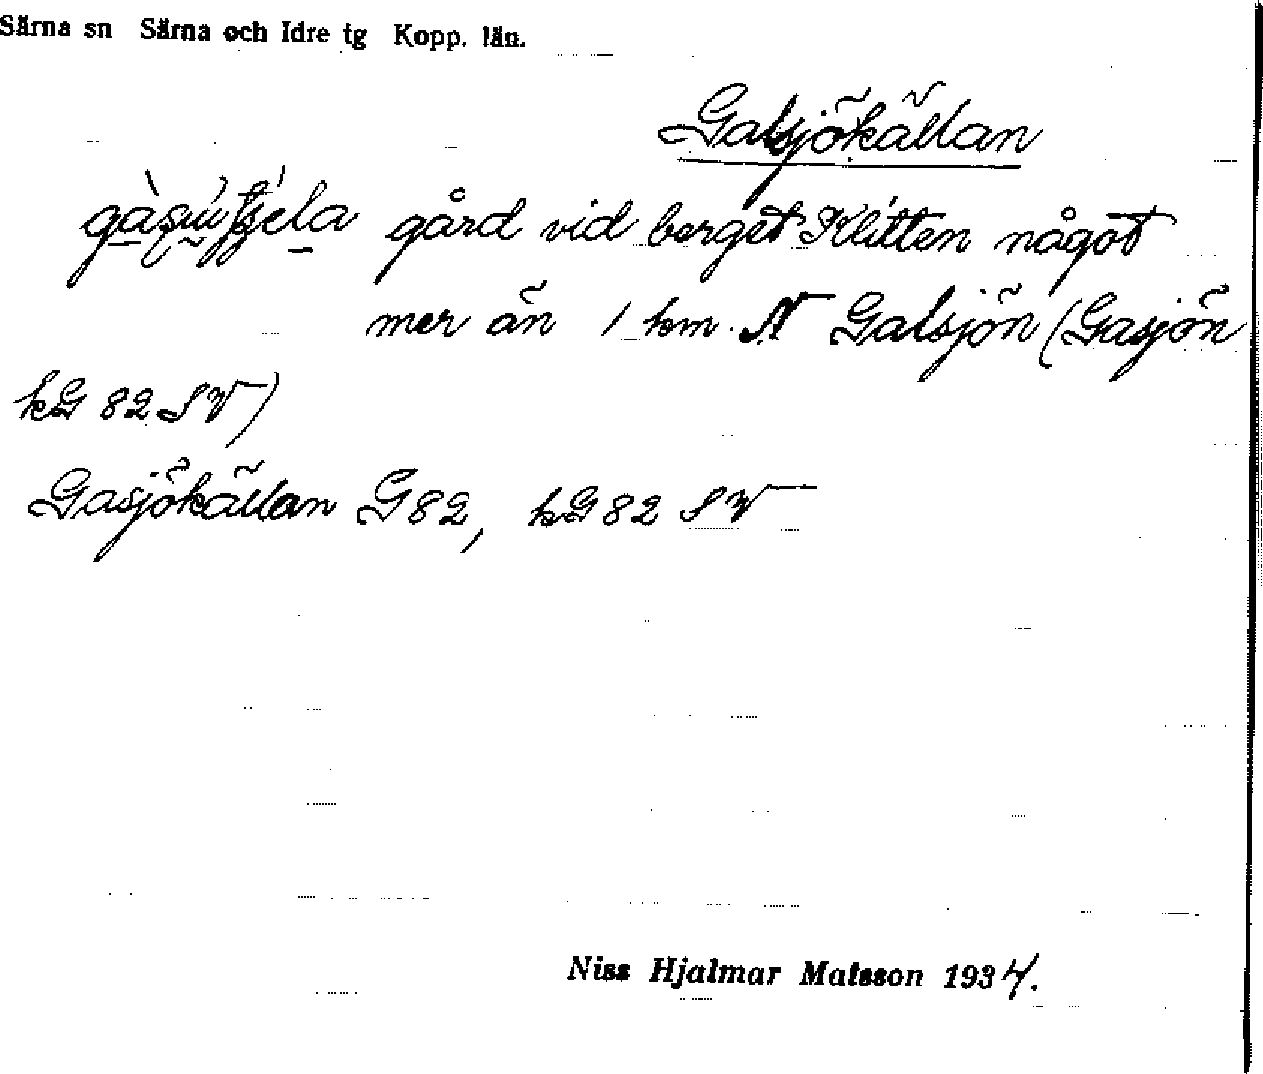 Särna sn Särna och Idre tg Kopp. län.
Galsjökällan
gård vid berget Klitten något
mer än 1 km. N Galsjön (Gasjön
kG 82 SV)
Gasjökällan G82, kG82 SV
Niss Hjalmar Matsson 1934.